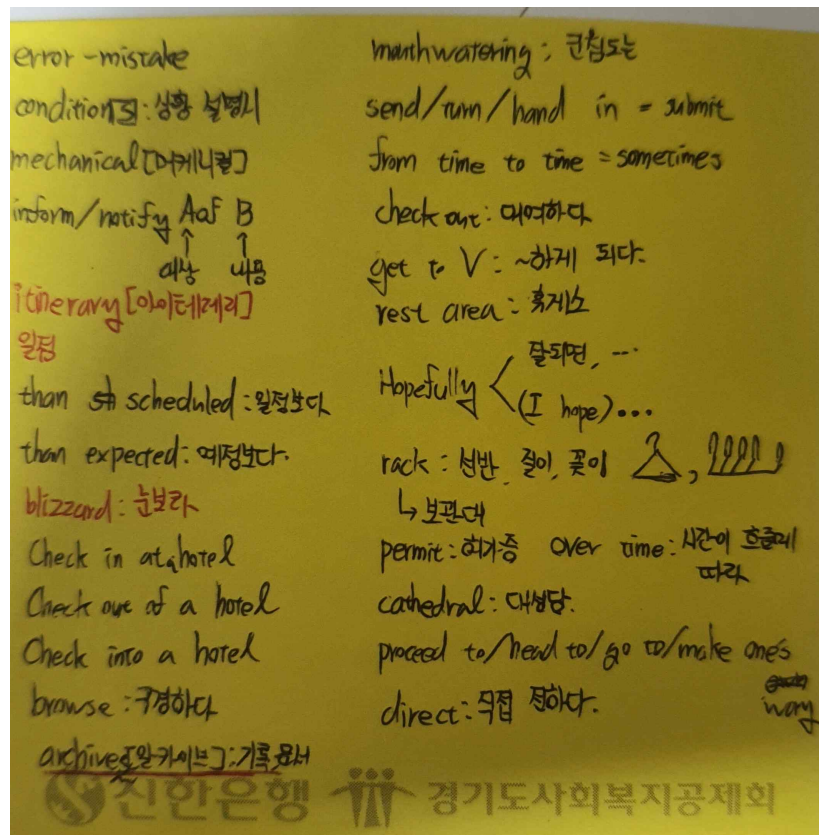 error - mistake
condition[s] : 상황 설명시
mechanical [머케니컬]
inform/notify A of B
↑ ↑
대상 내용
itinerary [아이테레리]
일정
than scheduled : 일정보다
than expected : 예정보다.
blizzard : 눈보라
Check in at a hotel
Check out of a hotel
Check into a hotel
browse : 구경하다
archive [알카이브] : 기록 문서
mouthwatering : 군침도는
send/turn/hand in = submit
from time to time = sometimes
check out : 대여하다
get to V : ~하게 되다.
rest area : 휴게소
Hopefully < 잘되면, ...
(I hope)...
rack : 선반, 걸이, 꽂이
↳ 보관대
permit : 허가증 over time : 시간이 흐름에
따라
cathedral : 대성당.
proceed to/head to/go to/make one's
way
direct : 직접 전하다.
신한은행 경기도사회복지공제회